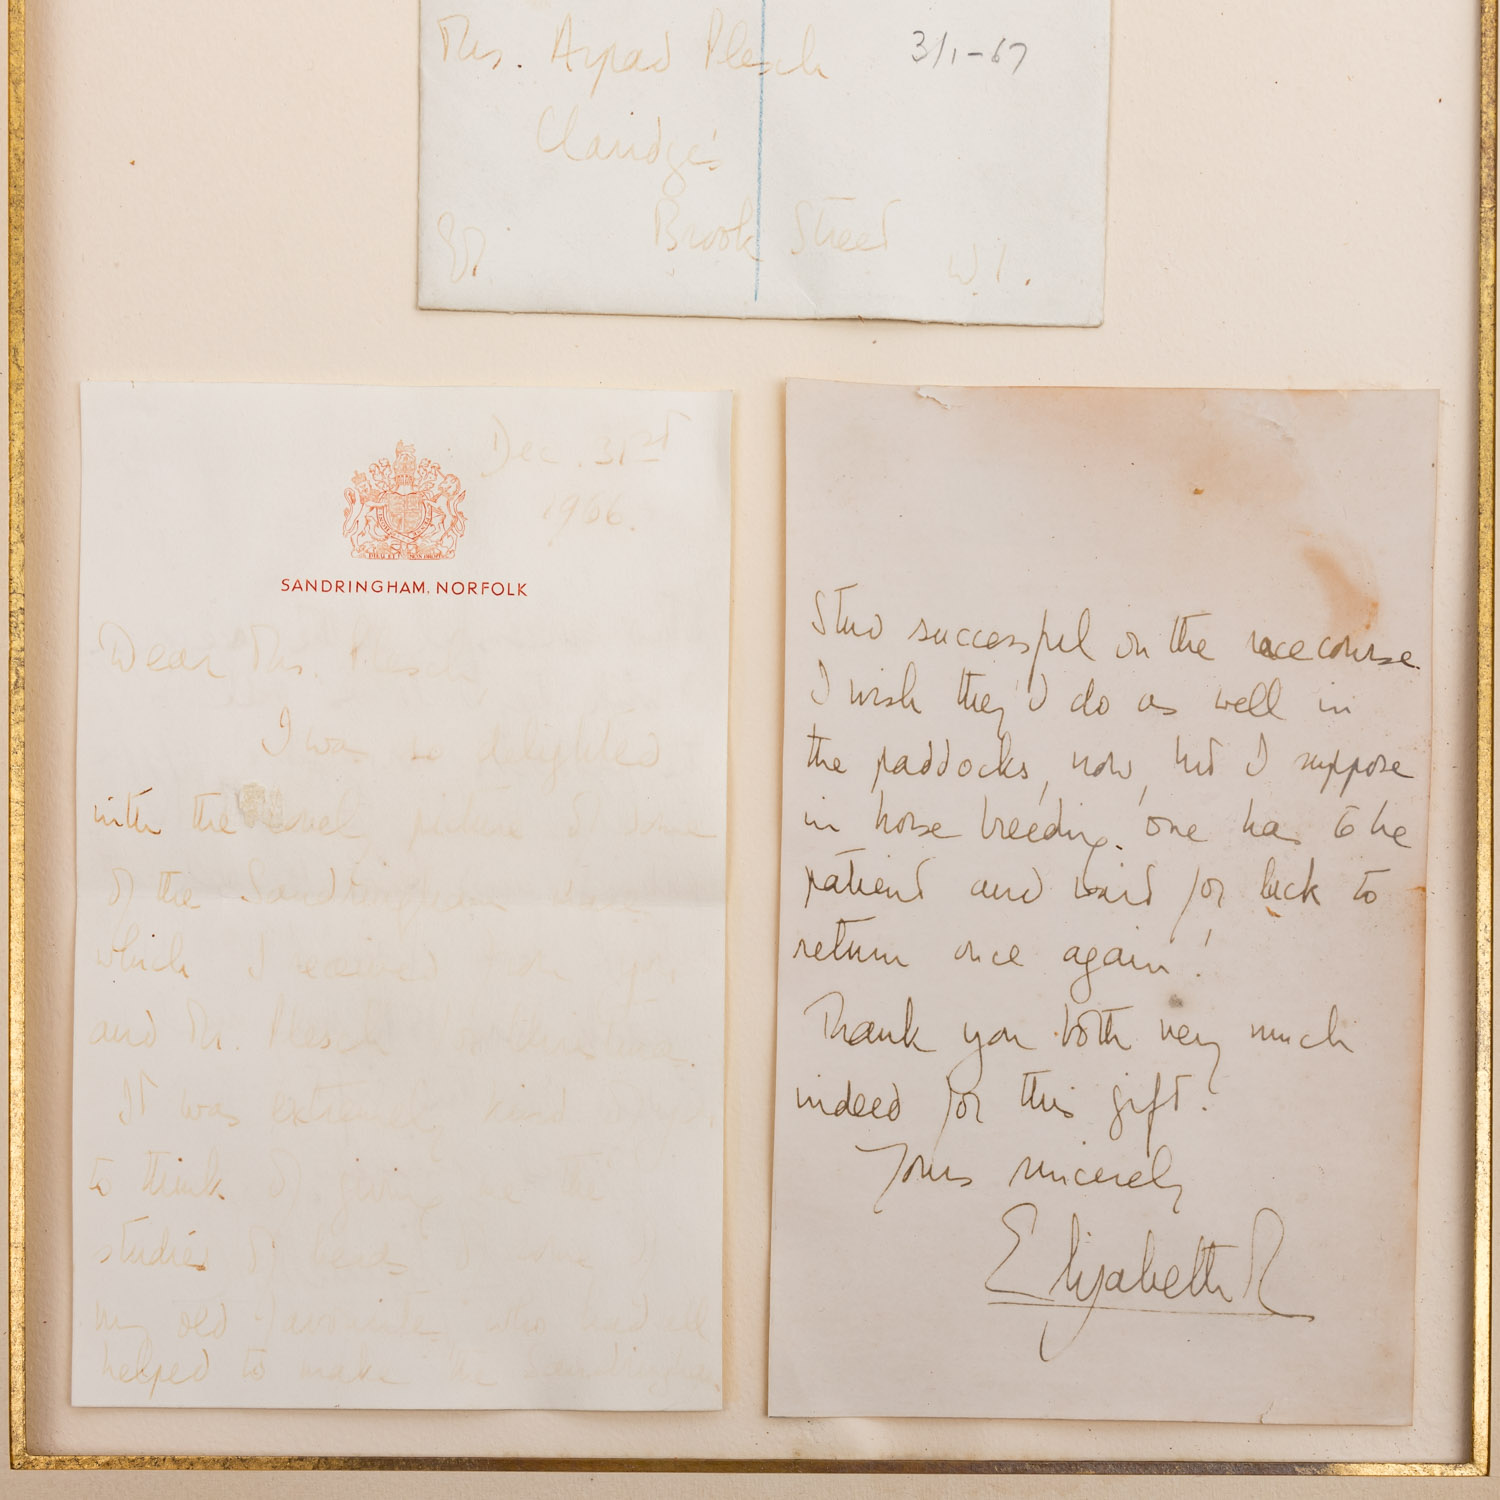 Mrs. Arpad Plesch
3/1-67
Claridge's
Brook Street
W.1.
ER
Dec. 31st
1966.
SANDRINGHAM, NORFOLK
Dear Mrs. Plesch,
I was so delighted
with the picture of some
of the Sandringham
which I received from you
and Mr. Plesch
It was extremely kind of you
to think of giving me the
studies of heads of
my old favourites, who had all
helped to make the Sandringham
Stud successful on the racecourse.
I wish they'd do as well in
the paddocks, now, but I suppose
in horse breeding one has to be
patient and wait for luck to
return once again!
Thank you both very much
indeed for this gift.
Yours sincerely
Elizabeth R